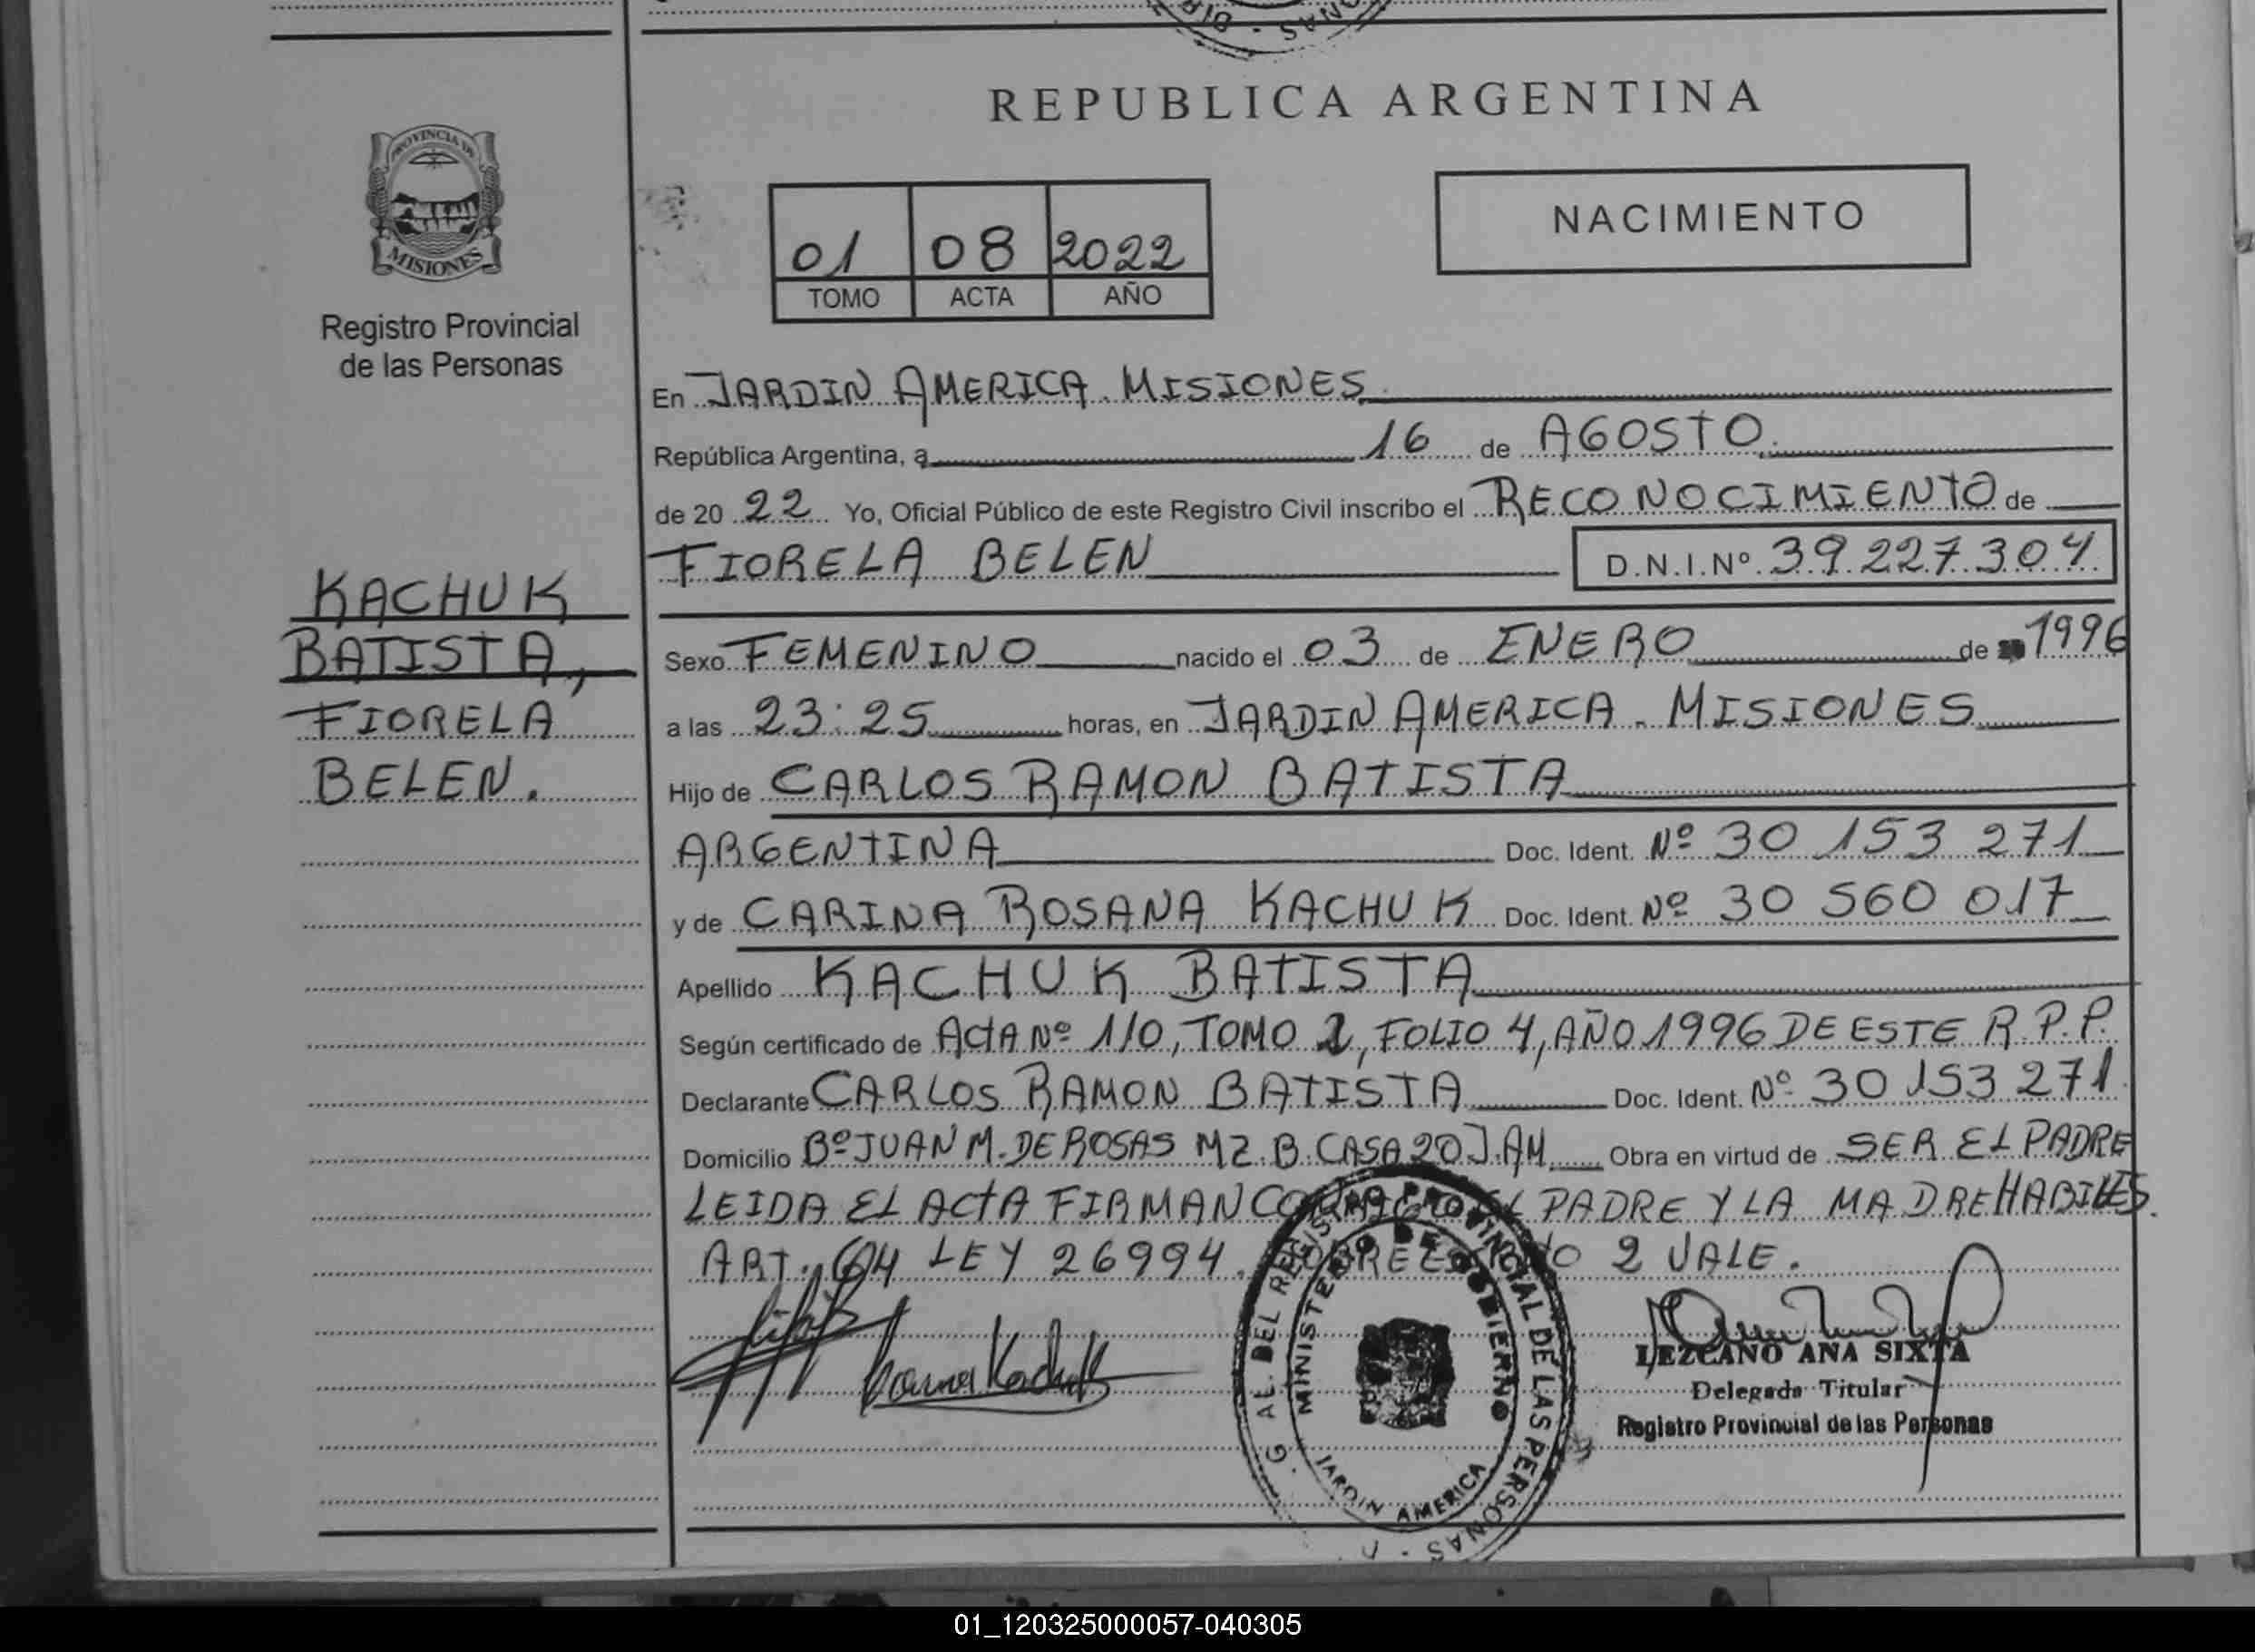 REPUBLICA ARGENTINA
PROVINCIA DE
MISIONES
Registro Provincial
de las Personas
01 08 2022
TOMO ACTA AÑO
NACIMIENTO
En JARDIN AMERICA. MISIONES
República Argentina, a 16 de AGOSTO
de 20 22 Yo, Oficial Público de este Registro Civil inscribo el RECONOCIMIENTO de
FIORELA BELEN D.N.I.Nº 39.227.304
KACHUK
BATISTA,
FIORELA
BELEN.
Sexo FEMENINO nacido el 03 de ENERO de 1996
a las 23:25 horas, en JARDIN AMERICA. MISIONES
Hijo de CARLOS RAMON BATISTA
ARGENTINA Doc. Ident. Nº 30 153 271
y de CARINA ROSANA KACHUK Doc. Ident. Nº 30 560 017
Apellido KACHUK BATISTA
Según certificado de ACTA Nº 110, TOMO 2, FOLIO 4, AÑO 1996 DE ESTE R.P.P.
Declarante CARLOS RAMON BATISTA Doc. Ident. Nº 30 153 271
Domicilio Bº JUAN M. DE ROSAS MZ. B. CASA 20 J. AM Obra en virtud de SER EL PADRE
LEIDA EL ACTA FIRMAN CONMIGO EL PADRE Y LA MADRE HABILES.
ART. 64 LEY 26994. SOBREESCRITO 2 VALE.
Kachuk
LEZCANO ANA SIXTA
Delegada Titular
Registro Provincial de las Personas
G AL. DEL REGISTRO PROVINCIAL DE LAS PERSONAS
MINISTERIO DE GOBIERNO
JARDIN AMERICA
01_120325000057-040305